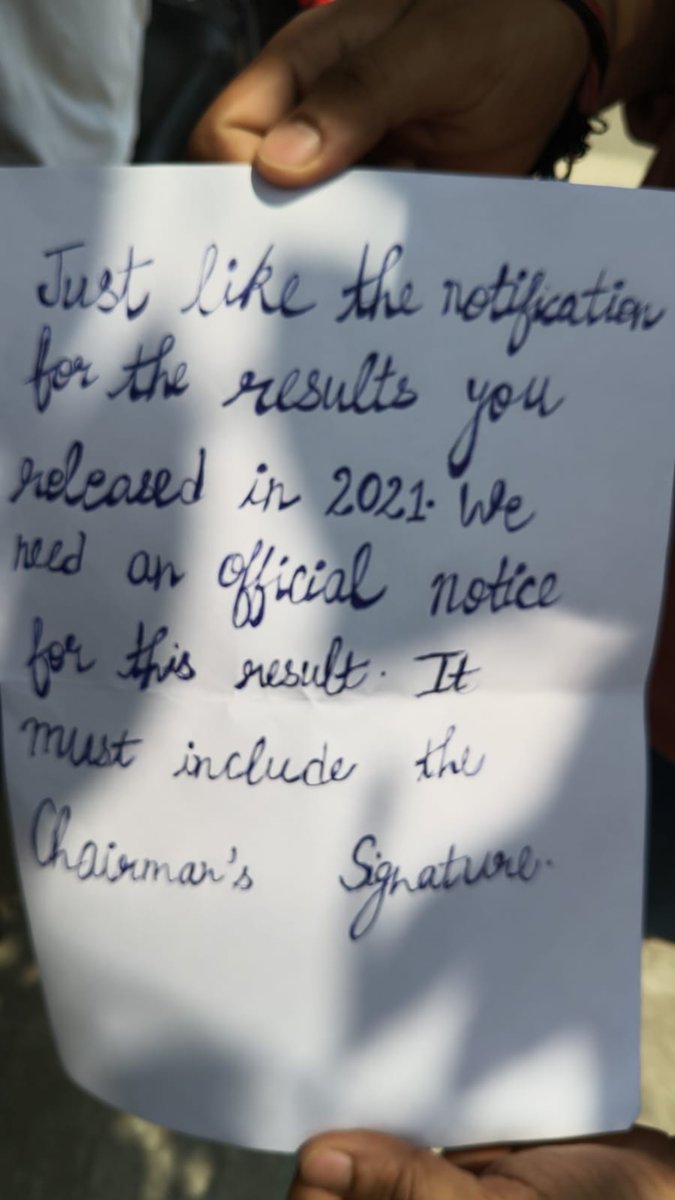 Just like the notification
for the results you
released in 2021. We
need an official notice
for this result. It
must include the
Chairman's Signature.